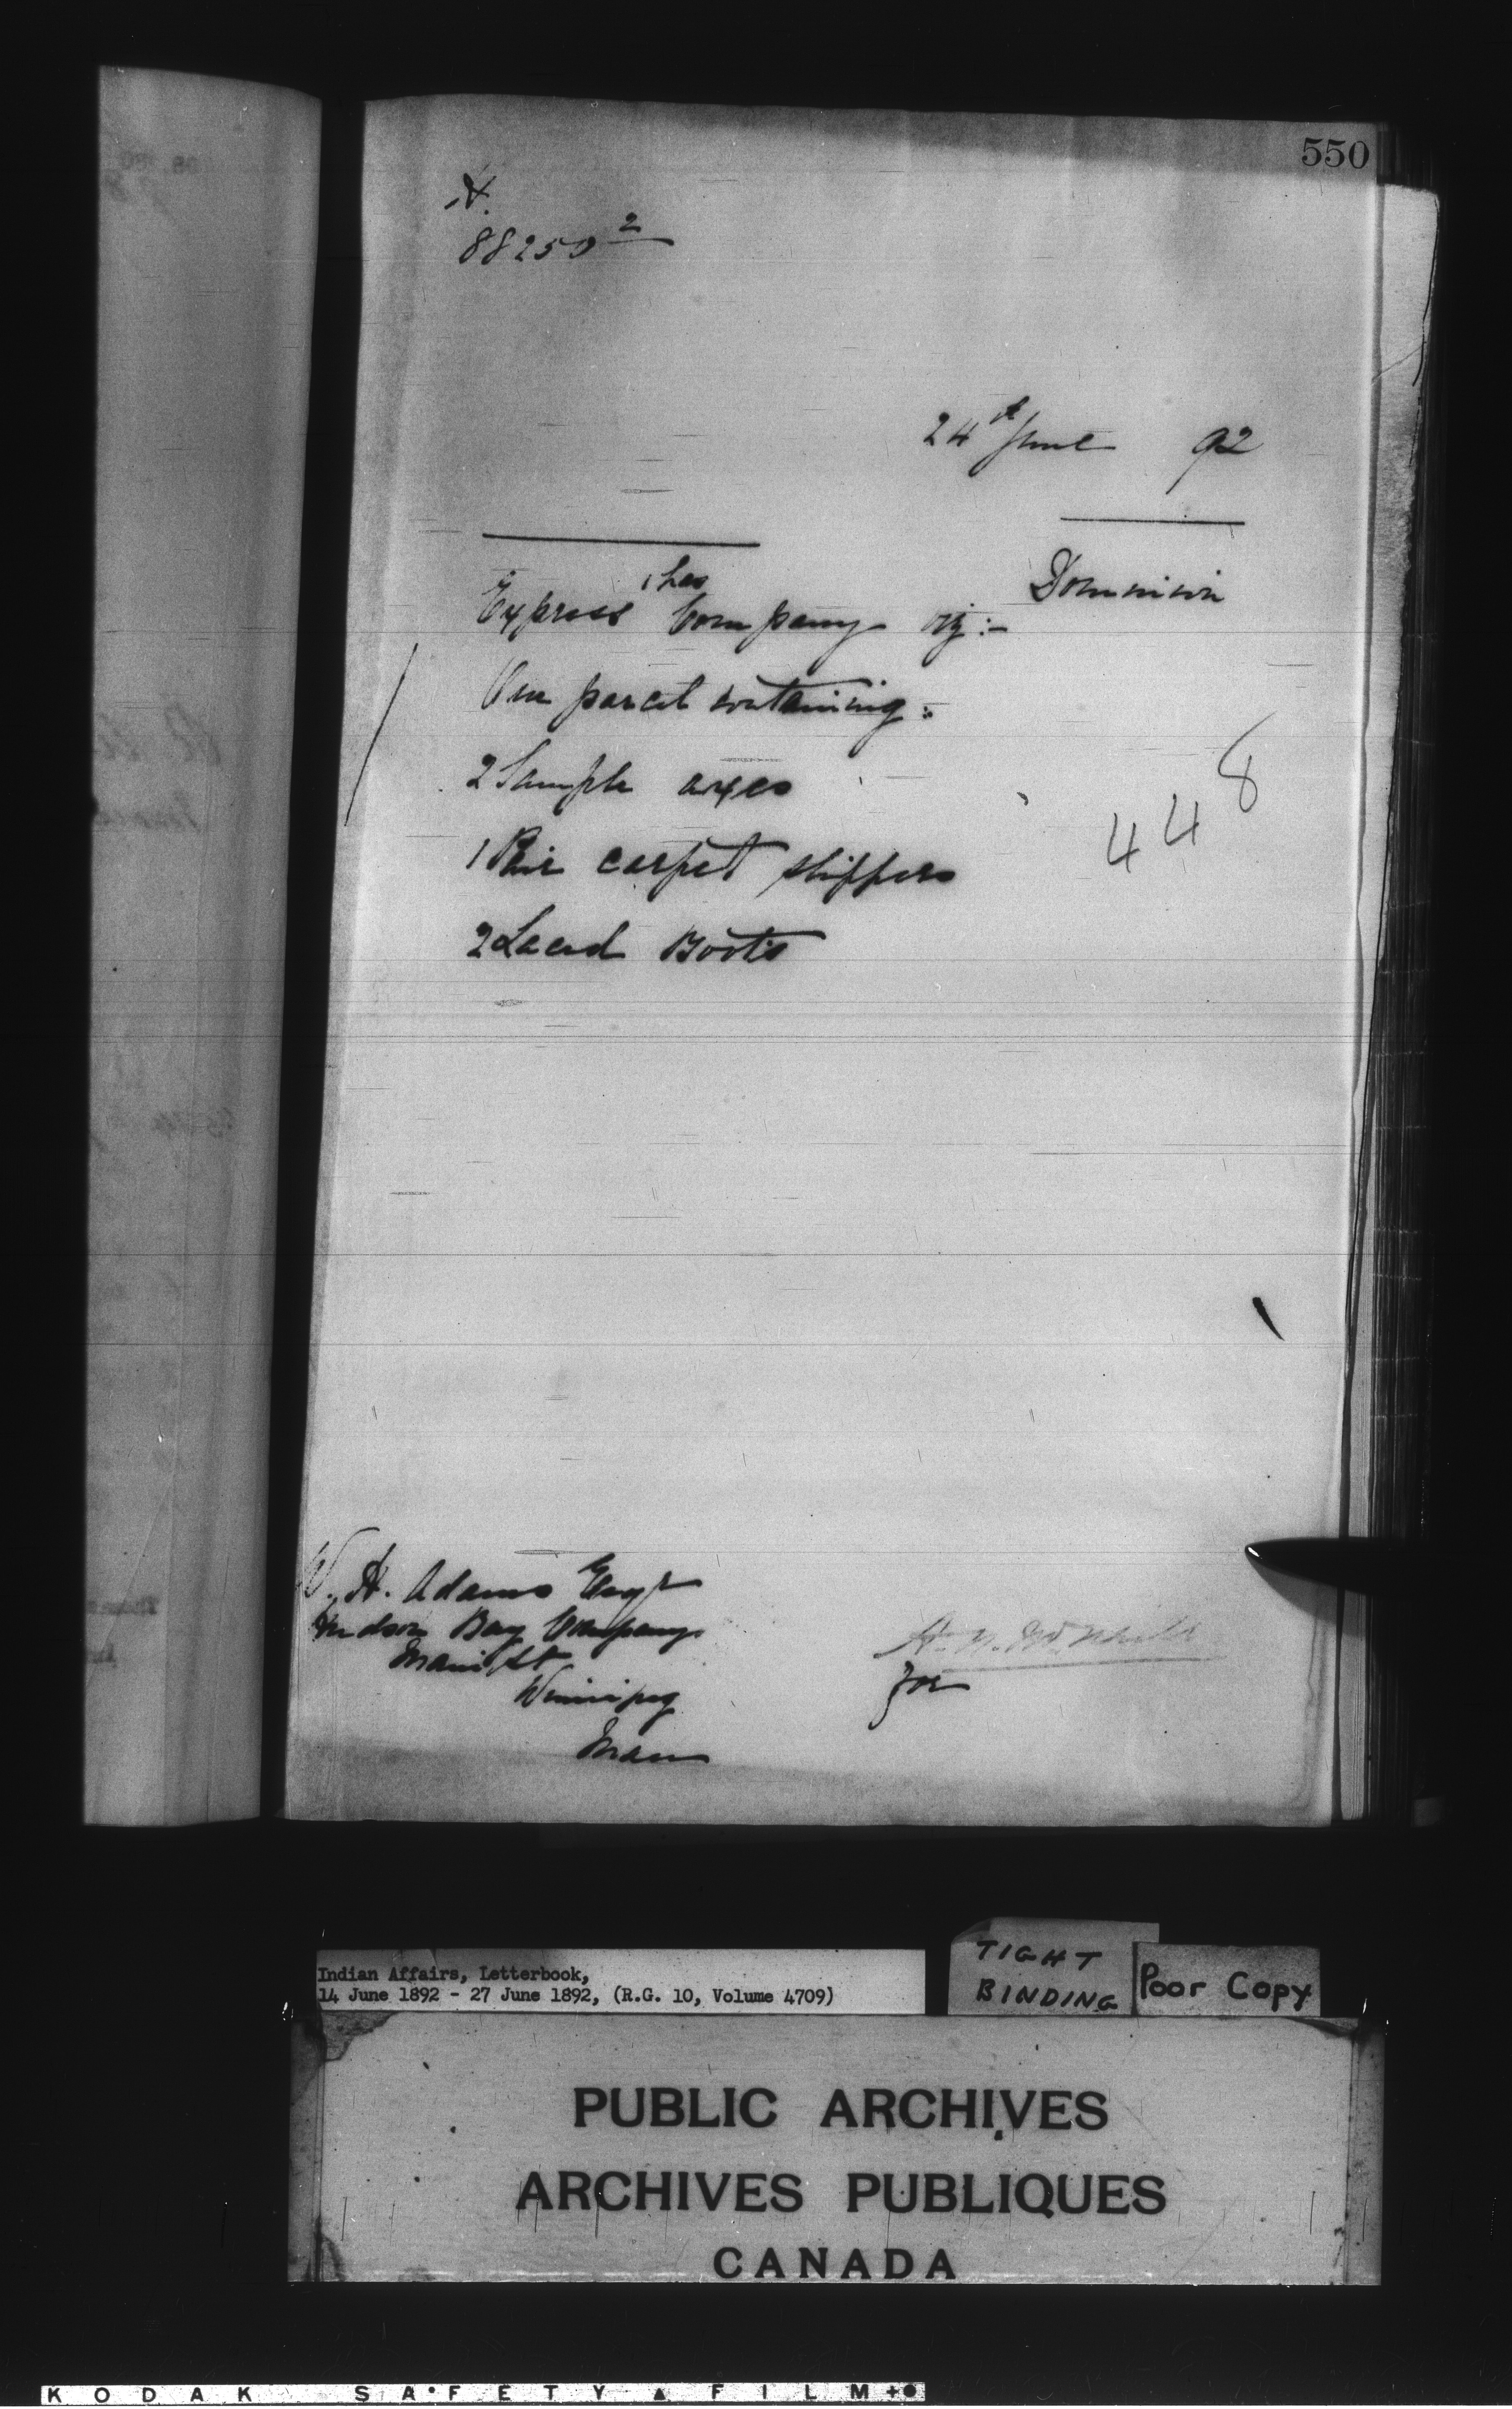 550
H.
88250²
24th June 92
Dominion
Express Company viz:-
One parcel containing:
2 Sample axes
1 Pair carpet slippers
2 Laced Boots
448
W. H. Adams Esqr
Hudson Bay Company
Main St
Winnipeg
Man
for
Indian Affairs, Letterbook,
14 June 1892 - 27 June 1892, (R.G. 10, Volume 4709)
TIGHT
BINDING
Poor Copy
PUBLIC ARCHIVES
ARCHIVES PUBLIQUES
CANADA
KODAK SAFETY FILM